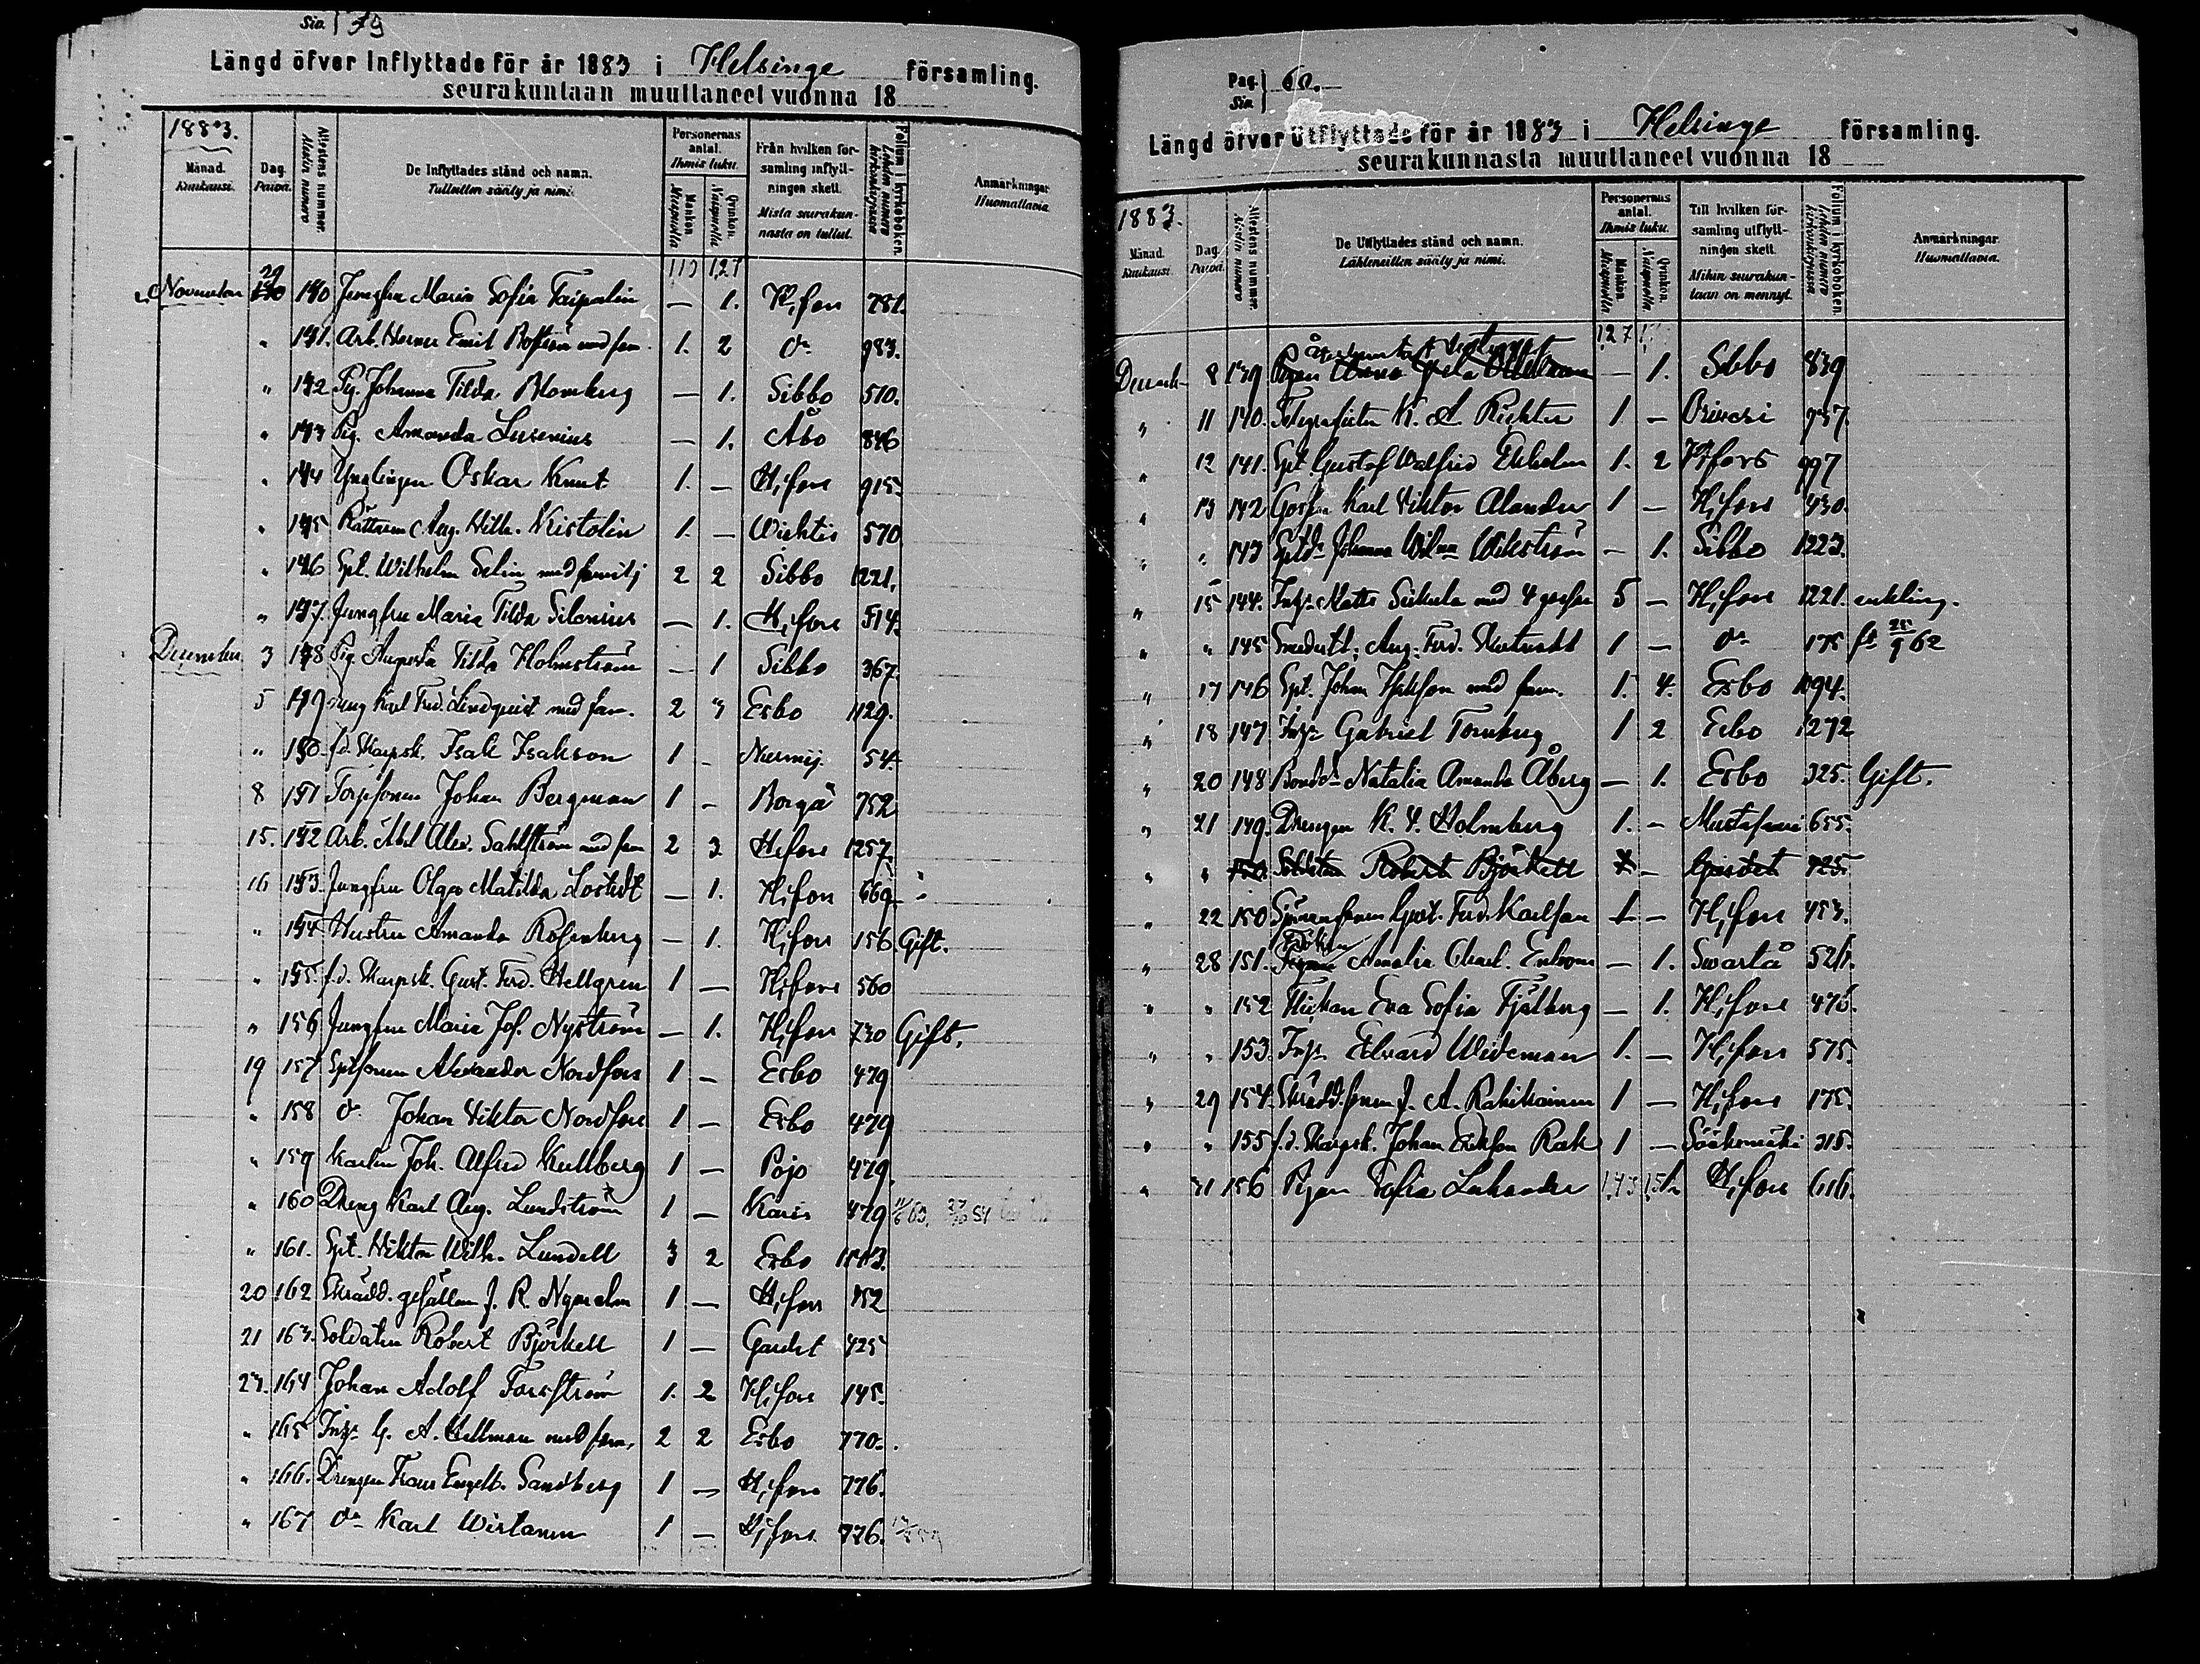 Sio. 59
Längd öfver Inflyttade för år 1883 i Helsinge församling.
seurakuntaan muuttaneet vuonna 18
1883.
Månad. Kuukausi.
Dag. Päivä.
Attestens nummer
De Inflyttades stånd och namn.
Tulleitten sääty ja nimi.
Personernas antal. Ihmis luku.
Mankön. Miespuolia
Qvinkön. Naispuolia
Från hvilken församling inflyttningen skett.
Mistä seurakunnasta on tullut.
Folium i kyrkoboken.
Anmärkningar
Huomattavia.
110 121
November 29 140 Jungfru Maria Sofia Taipalin — 1. H:fors 781.
" 141. Arb. Herner Emil Boström med fam. 1. 2 do 983.
" 142 Pig. Johanna Tilda Blomberg — 1. Sibbo 510.
" 143 Pig. Amanda Lusenius — 1. Åbo 846
" 144 Ynglingen Oskar Knut 1. — H:fors 915.
" 145 Rättaren Aug. Wilh. Kristolin 1. — Wichtis 570
" 146 Spt. Wilhelm Selin med familj 2 2 Sibbo 1221.
" 147. Jungfru Maria Tilda Silenius — 1. H:fors 514.
December 3 148 Pig. Augusta Tilda Holmström — 1 Sibbo 367.
5 149 Karl Fred. Lindqvist med fam. 2 Esbo 1129.
" 150. f.d. Skarpsk. Isak Isakson 1 - Nurmij. 54.
8 151 Torpsonen Johan Bergman 1 — Borgå 752
15. 152 Arb. Abel Alex. Sahlström med fam 2 3 H:fors 1257.
16 153. Jungfru Olga Matilda Lostedt — 1. H:fors 669.
" 154. Hustru Amanda Rosenberg — 1. H:fors 156 Gift.
" 155. f.d. Skarpsk. Gust. Ferd. Hellgren 1 — H:fors 560
" 156 Jungfru Maria Jos. Nyström — 1. H:fors 730 Gift.
19 157 Sptsonen Alexander Nordfors 1 — Esbo 479
" 158 do Johan Viktor Nordfors 1 — Esbo 479
" 159 Karlen Joh. Alfred Kullberg 1 — Pojo 479.
" 160 Dreng Karl Aug. Lundström 1 — Karis 479
" 161. Spt. Viktor Wilh. Lundell 3 2 Esbo
20 162 Skrädd. gesällen J. R. 1 — H:fors 752
21 163. Soldaten Robert Björkell 1 — Gardet 425
23. 164 Johan Adolf Forsström 1. 2 H:fors 145.
" 165 Inhs. G. A. Hellman med fam. 2 2 Esbo 770.
" 166. Drengen Frans Engelb. Sandberg 1 — H:fors 776.
" 167 do Karl Wirtanen 1 — H:fors 776.
Pag. Sio. 60.
Längd öfver Utflyttade för år 1883 i Helsinge församling.
seurakunnasta muuttaneet vuonna 18
1883.
Månad. Kuukausi.
Dag. Päivä.
Attestens nummer
De Utflyttades stånd och namn.
Lähteneitten sääty ja nimi.
Personernas antal. Ihmis luku.
Mankön. Miespuolia
Qvinkön. Naispuolia
Till hvilken församling utflyttningen skett.
Mihin seurakuntaan on mennyt.
Folium i kyrkoboken.
Anmärkningar.
Huomattavia.
127
Decemb. 8 139 Pigan — 1. Sibbo 839
" 11 140. Telegrafisten K. A. Richter 1 — Orivesi 757.
" 12 141. Spt. Gustaf Walfrid Ekholm 1. 2 H:fors 997
" 13 142 Gossen Karl Viktor Alander 1 — H:fors 430.
" " 143 Sptdr Johanna Wilma Wikström — 1. Sibbo 1223.
" 15 144. Inhs. Matts Siikula med 4 gossar 5 — H:fors 1221. enkling.
" " 145 Smedsl. Aug. Ferd. 1 — do 175
" 17 146 Spt. Johan Isakson med fam. 1. 4. Esbo 1094.
" 18 147 Inhs. Gabriel Tornberg 1 2 Esbo 1272
" 20 148 Bonddr Natalia Amanda Åberg — 1. Esbo 325. Gift.
" 21 149. Drengen K. V. Holmberg 1. — Mustasaari 655.
" " 150 Soldaten Robert Björkell 1 — Gardet 425
" 22 150 Gust. Ferd. Karlson 1 — H:fors 453.
" 28 151. Fröken Amalia Charl. Enbom — 1. Swartå 521.
" " 152 Flickan Eva Sofia Fjälberg — 1. H:fors 476.
" " 153. Inhs. Edvard Wideman 1. — H:fors 575.
" 29 154. Skrädd.sonen J. A. Rahikainen 1 — H:fors 175.
" " 155 f.d. Skarpsk. Johan Erikson Rak 1 — Sääksmäki 315.
" 31 156 Pigan Sofia Lekander H:fors 616.